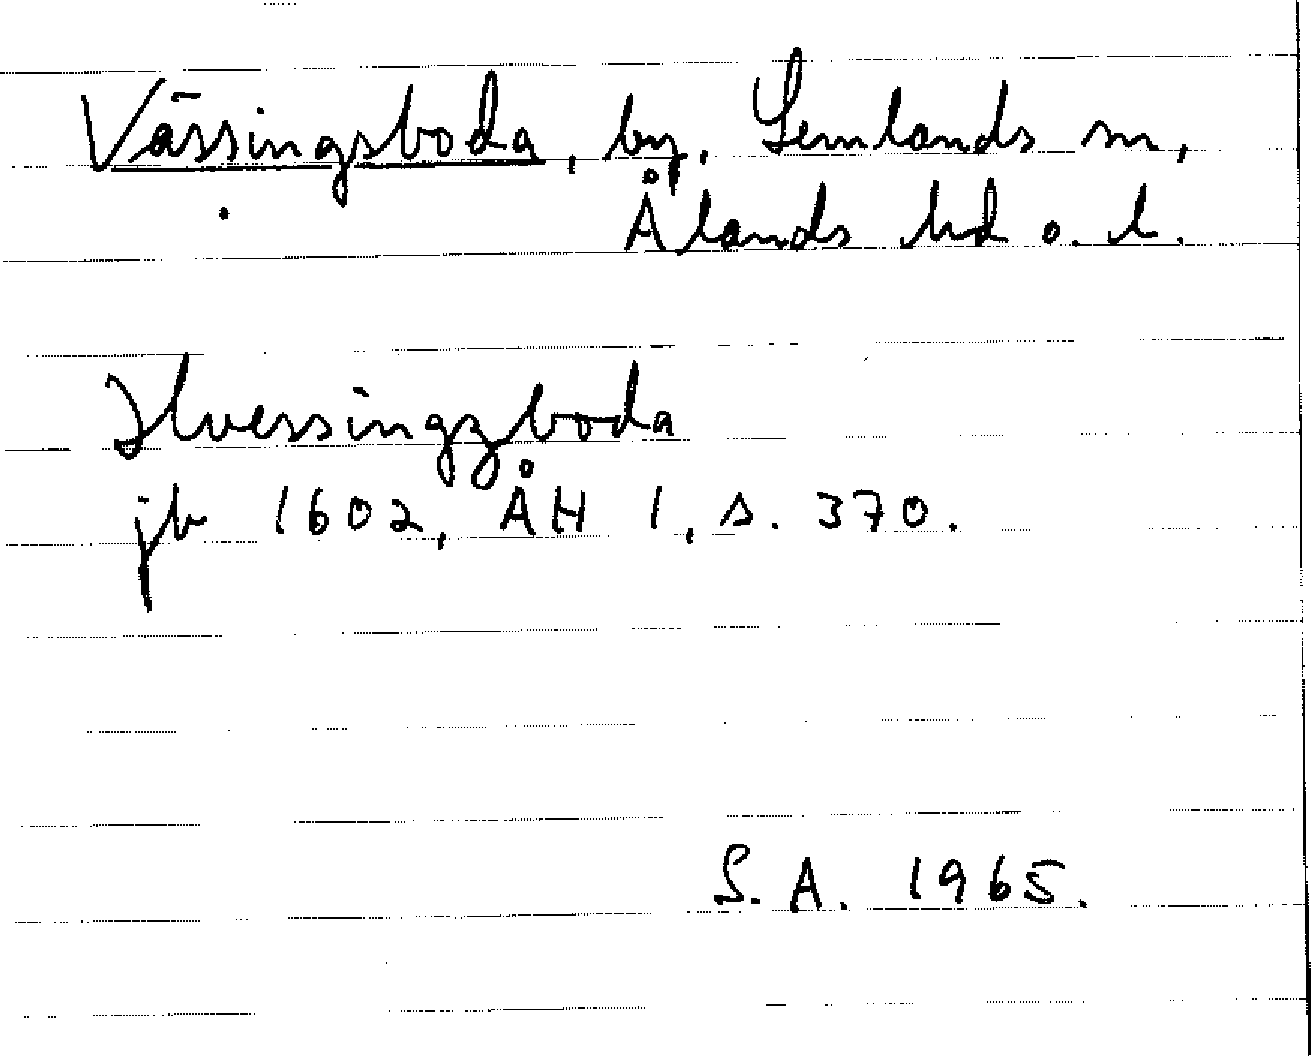 Vässingsboda, by, Lemlands sn,
Ålands hd o. l.
Hvessingzboda
jb 1602, ÅH 1, s. 370.
S. A. 1965.